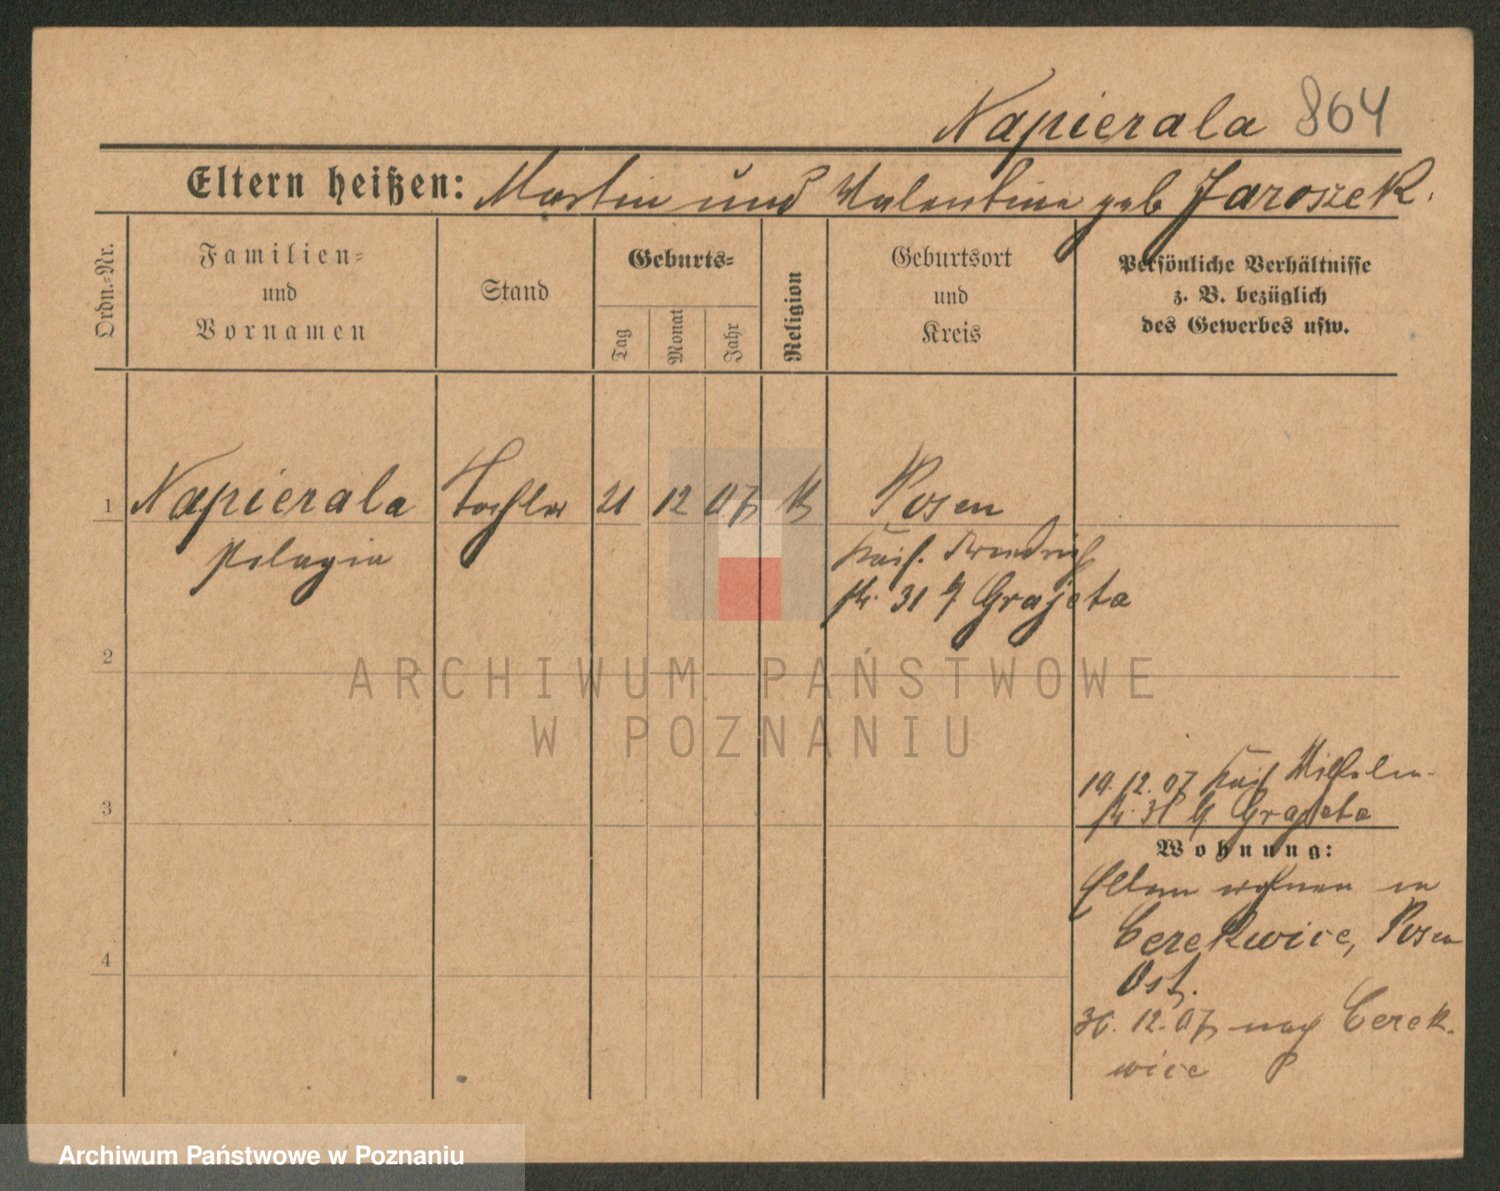 Napierala 864
Eltern heißen: Martin und Valentine geb Jaroszek.
Ordn.-Nr.
Familien-
und
Vornamen
Stand
Geburts-
Tag
Monat
Jahr
Religion
Geburtsort
und
Kreis
Persönliche Verhältnisse
z. B. bezüglich
des Gewerbes usw.
1 Napierala Tochter 21 12 07 K Posen
Pelagia Kais. Friedrich
str. 31 b/ Grajeta
2
ARCHIWUM PAŃSTWOWE
W POZNANIU
12. 07 Kais Wilhelm-
3 str. 31 b/ Grajeta
Wohnung:
Eltern wohnen in
Cerekwice, Posen
4 Ost.
12. 07 nach Cerek-
wice
Archiwum Państwowe w Poznaniu